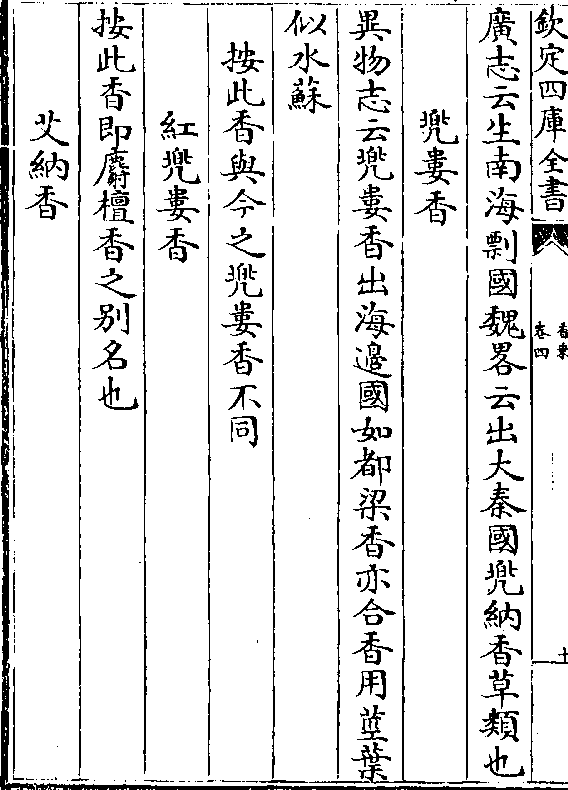 欽定四庫全書
香乗
卷四
十
廣志云生南海剽國魏畧云出大秦國兠納香草類也
兠婁香
異物志云兠婁香出海邉國如都梁香亦合香用莖葉
似水蘇
按此香與今之兠婁香不同
紅兠婁香
按此香即麝檀香之别名也
艾納香